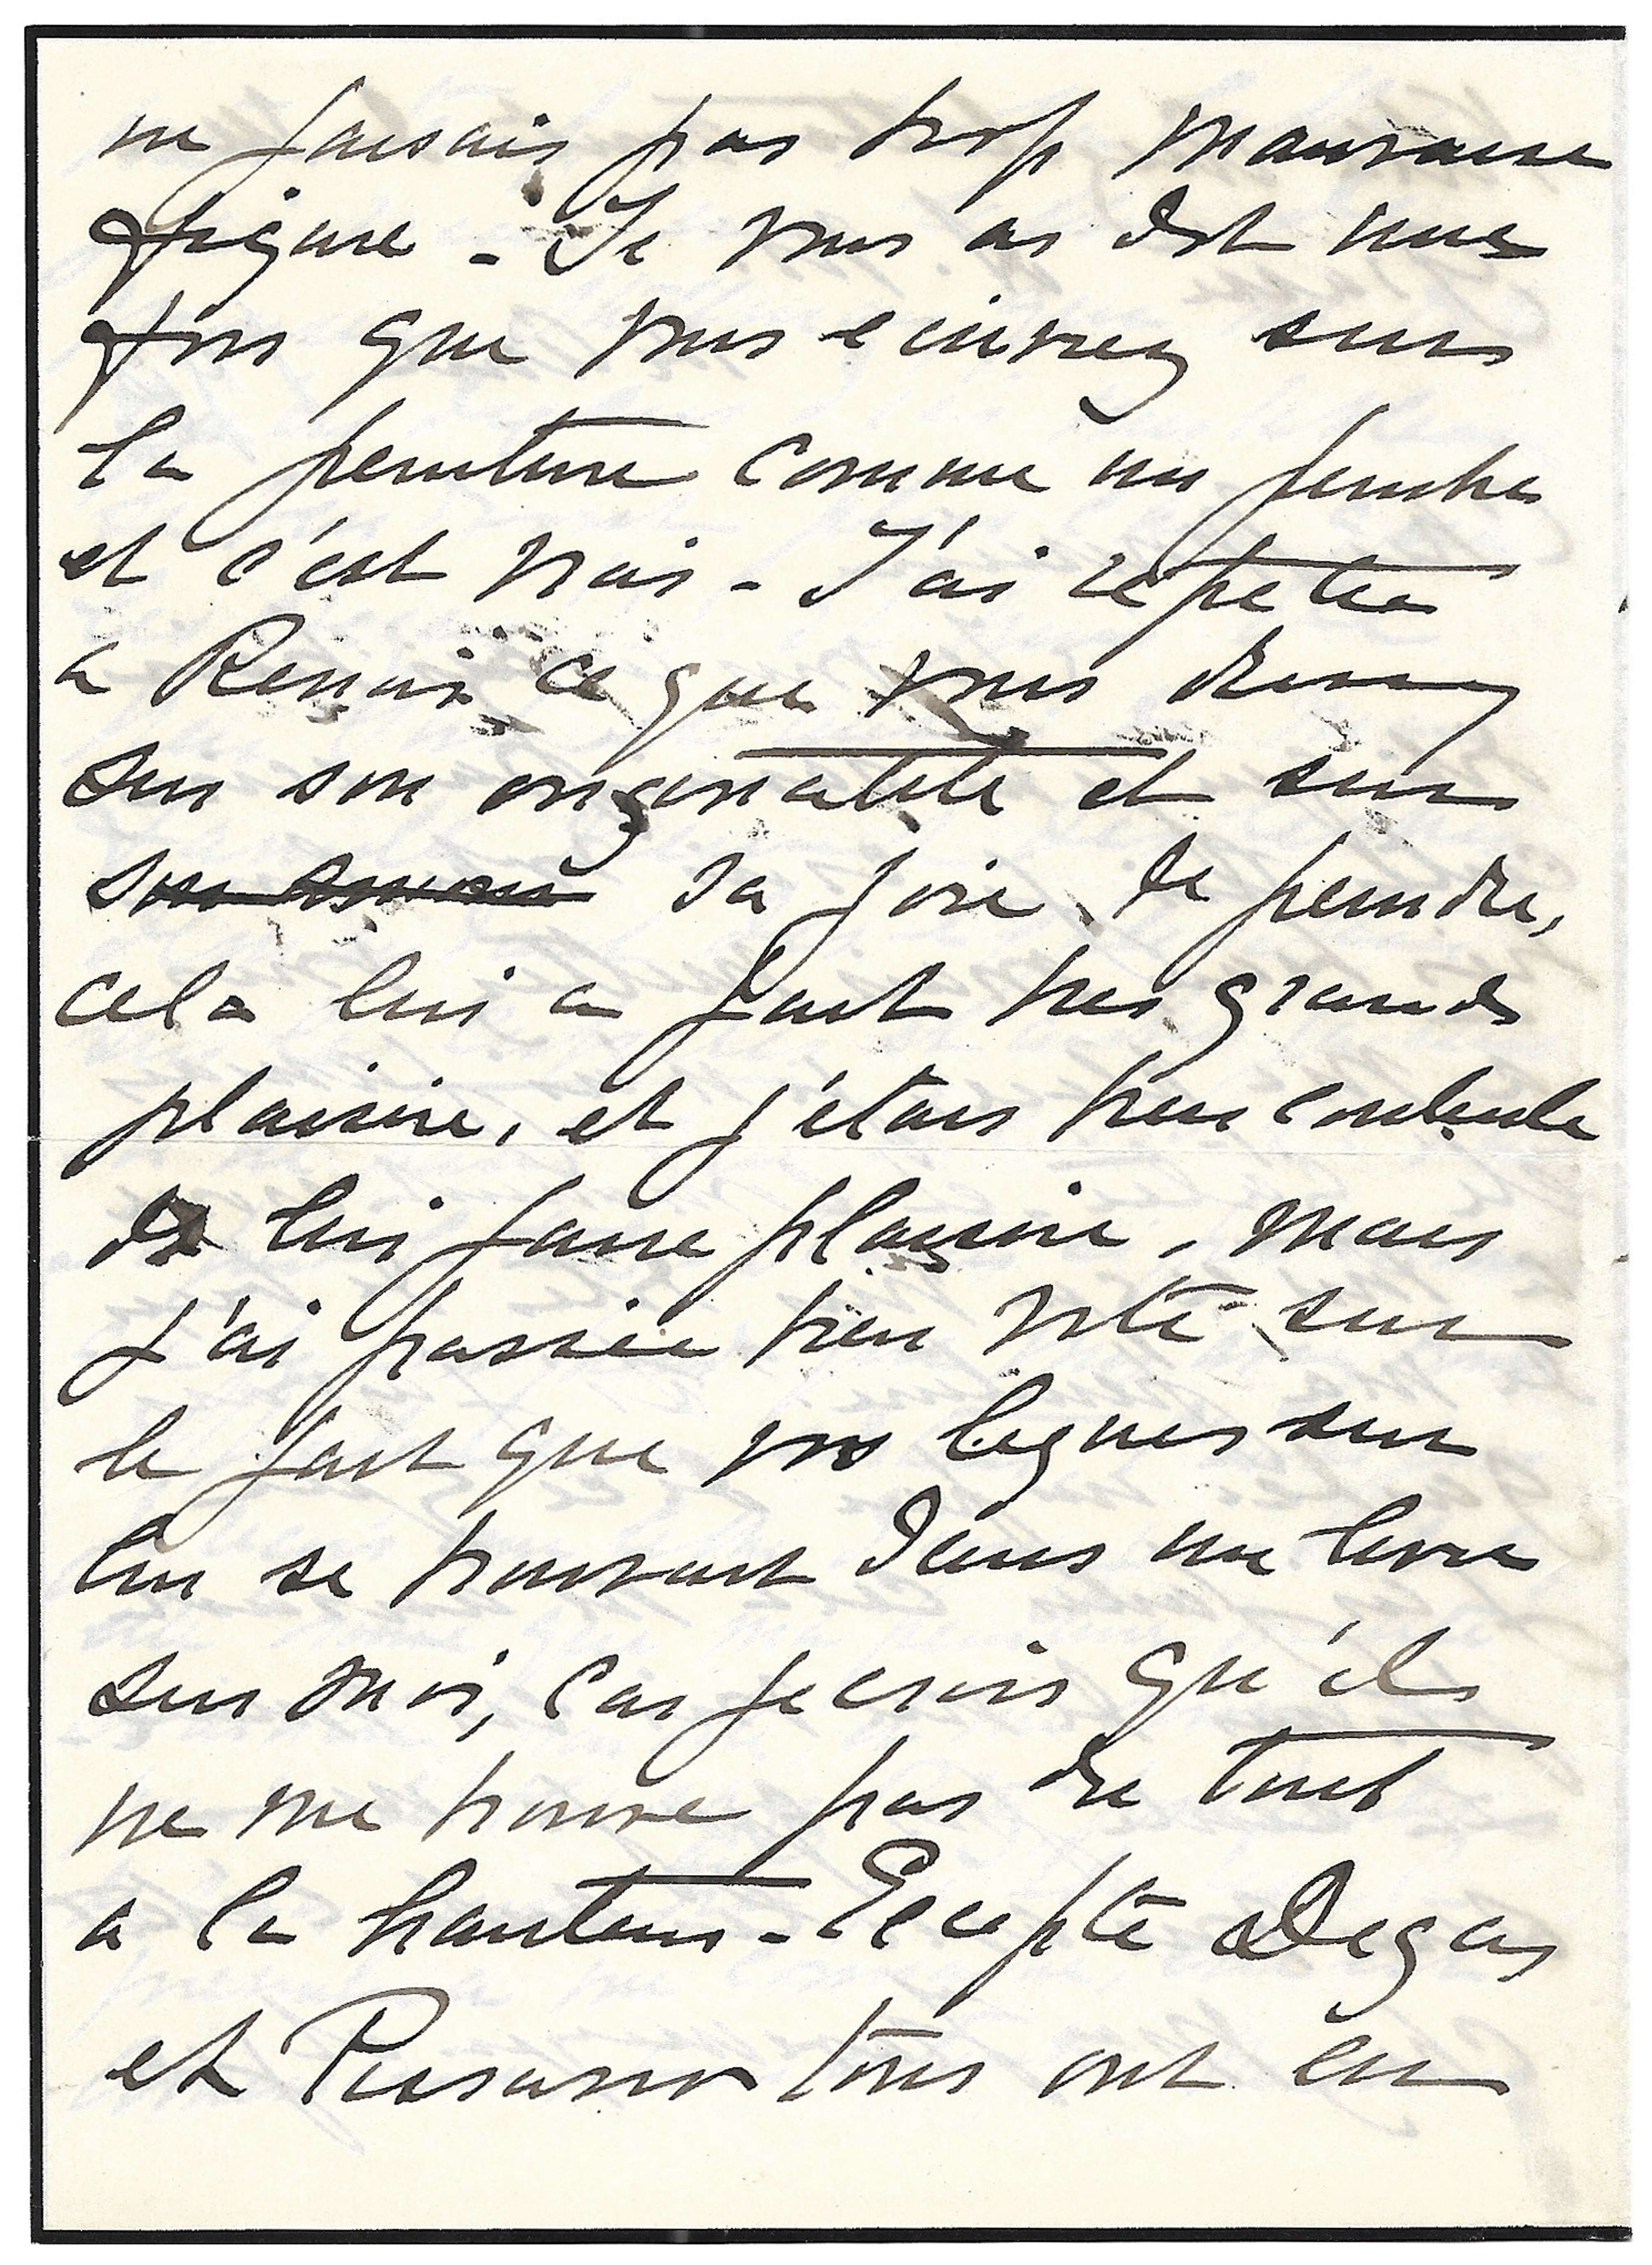 ne faisais pas trop mauvaise
figure - Je vous ai dit une
fois que vous ecrivez sur
la peinture comme un peintre
et c'est vrai - J'ai répété
a Renoir ce que vous dites
sur son originalité et sur
son amour sa joie de peindre,
cela lui a fait tres grand
plaisir, et j'étais tres contente
de lui faire plaisir, mais
j'ai passée bien vite sur
le fait que vos lignes sur
lui se trouvait dans un livre
sur moi, car je crois qu'ils
ne me trouve pas du tout
a la hauteur - Eccepté Degas
et Pissarro tous ont eu